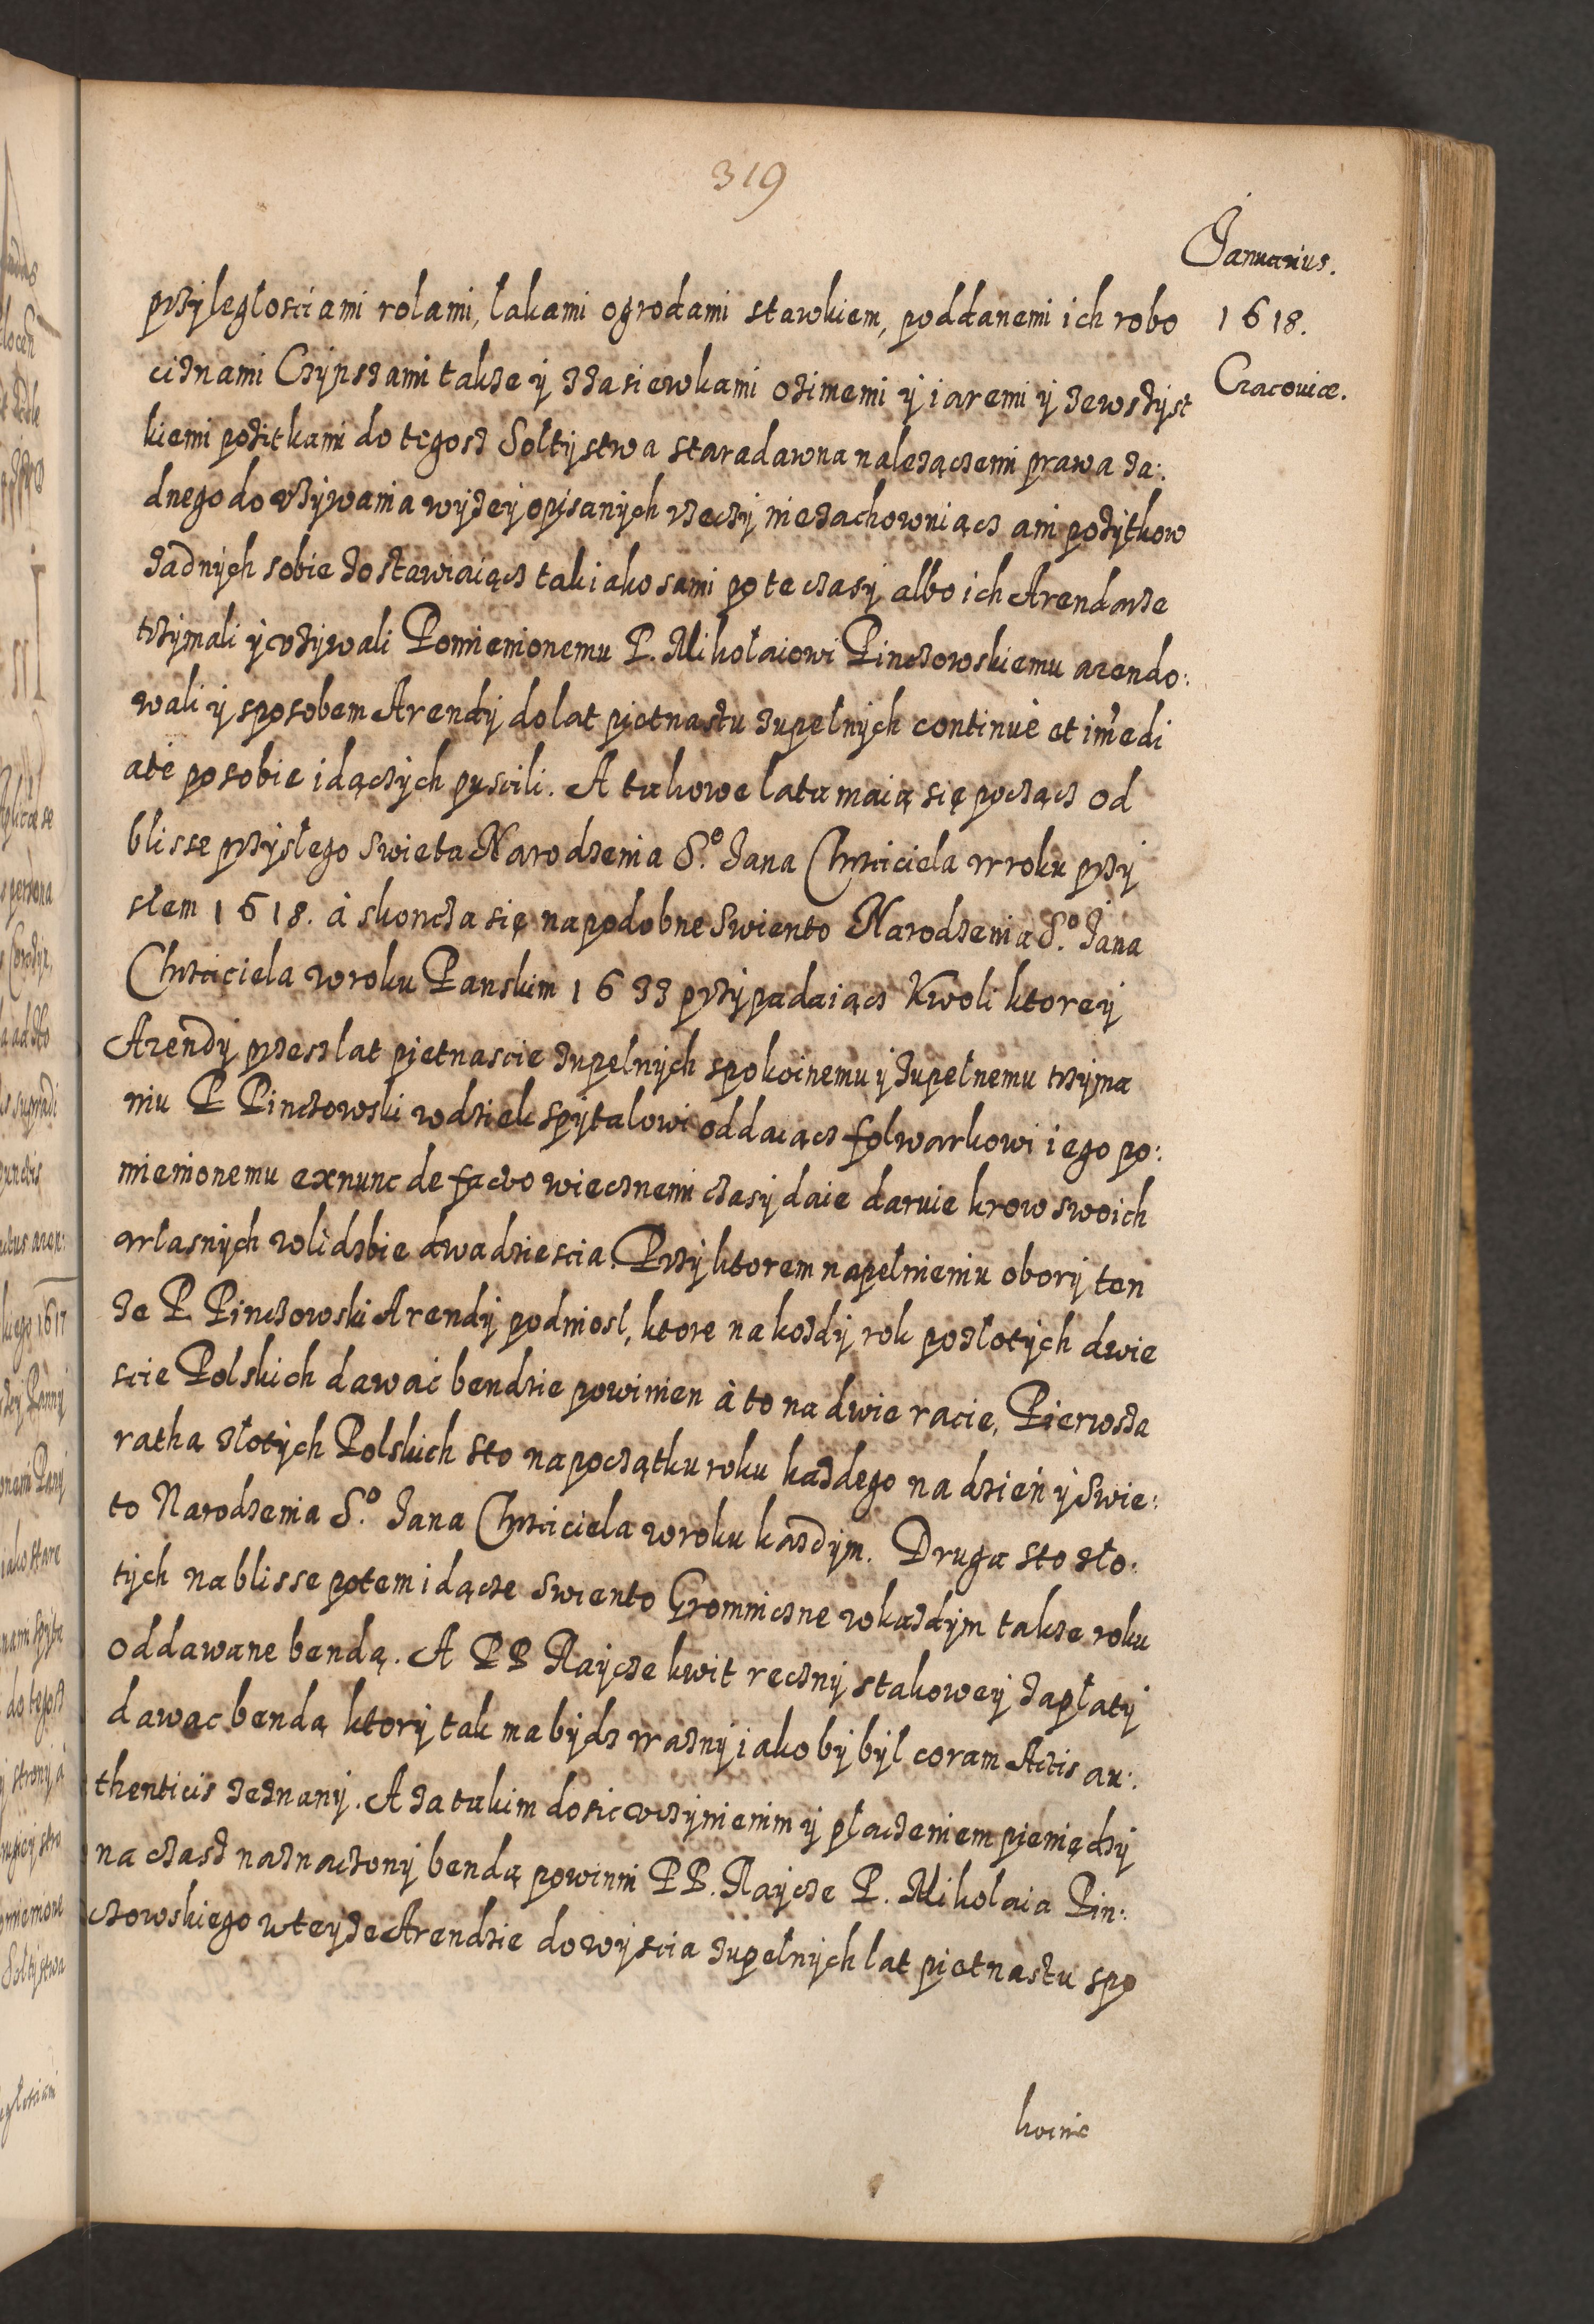 319
Januarius.
1618.
Cracoviæ.
przyległosciami rolami, lakami ogrodami stawkiem, poddanemi ich robo
ciznami Czynszami takze ÿ zasiewkami ozimemi ÿ iaremi ÿ zewszÿst
kiemi pozitkami do tegosz Soltÿstwa staradawna nalezączemi prawa za:
dnego do vzÿwania wÿzeÿ opisanÿch rzeczÿ niezachowuiącz ani pozÿtkow
zadnÿch sobie zostawiaiącz tak iako sami po te czasÿ albo ich Arendarze
trzÿmali ÿ vzÿwali Pomienionemu P. Mikołaiowi Pinczowskiemu arendo:
wali ÿ sposobem Arendÿ do lat piętnastu zupełnÿch continuè et imedi
atè po sobie idączÿch puscili. A takowe lata maią się począcz od
blisse przÿslego Swieta Narodzenia S.º Jana Chrzciciela w roku przÿ
słem 1618. à skoncza się na podobne Swiento Narodzenia S.º Jana
Chrzciciela w roku Panskim 1633 przÿpadaiącz Kwoli ktoreÿ
Arendÿ przesz lat pietnascie zupelnÿch spokoinemu ÿ zupełnemu trzÿma
niu P. Pinczowski wdziek spÿtalowi oddaiącz folwarkowi iego po:
mienionemu exnunc de facto wiecznemi czasÿ daie daruie krow swoich
własnÿch w lidzbie dwadziescia. Przÿ ktorem napełnieniu oborÿ ten
ze P. Pinczowski Arendÿ podniosl, ktore na kozdÿ rok po złotÿch dwie
scie Polskich dawać bendzie powinien à to na dwie racie, Pierwsza
ratha złotÿch Polskich sto na początku roku kazdego na dzień ÿ Swie:
to Narodzenia S.º Jana Chrzciciela w roku kazdÿm. Druga sto zło:
tÿch nablisse potem idącze Swiento Gromniczne w kazdÿm takze roku
oddawane bendą. A PP Raÿcze kwit recznÿ s takoweÿ zapłatÿ
dawac bendą ktorÿ tak ma bÿdz waznÿ iako bÿ bÿl coram Actis au:
thenticis zeznanÿ. A za takim dosic vczÿnienim ÿ płaczeniem pieniędzÿ
na czasz naznaczonÿ bendą powinni PP. Raÿcze P. Mikolaia Pin:
czowskiego w teÿze Arendzie do wÿscia zupełnÿch lat pietnastu spo
koinie